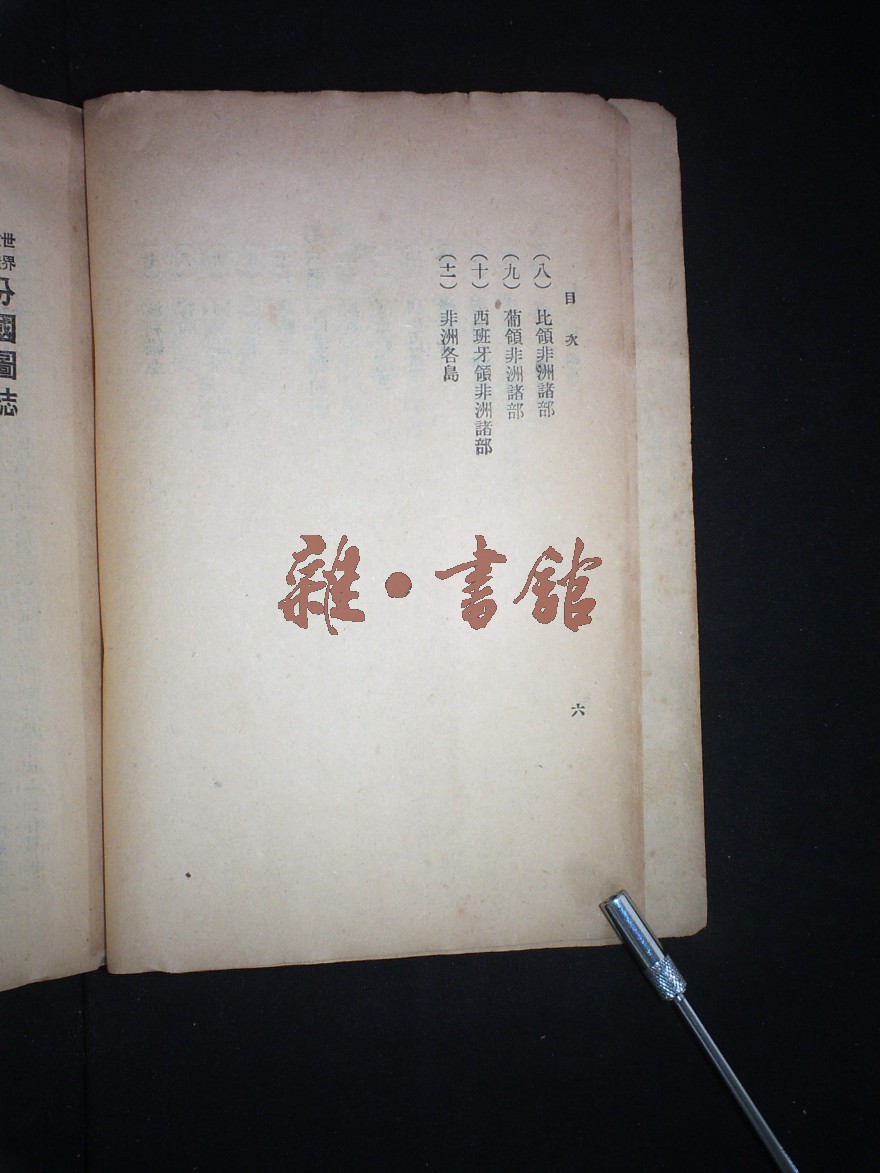 目次
(八) 比領非洲諸部
(九) 葡領非洲諸部
(十) 西班牙領非洲諸部
(十一) 非洲各島
六
雜•書館
世界
分國圖誌